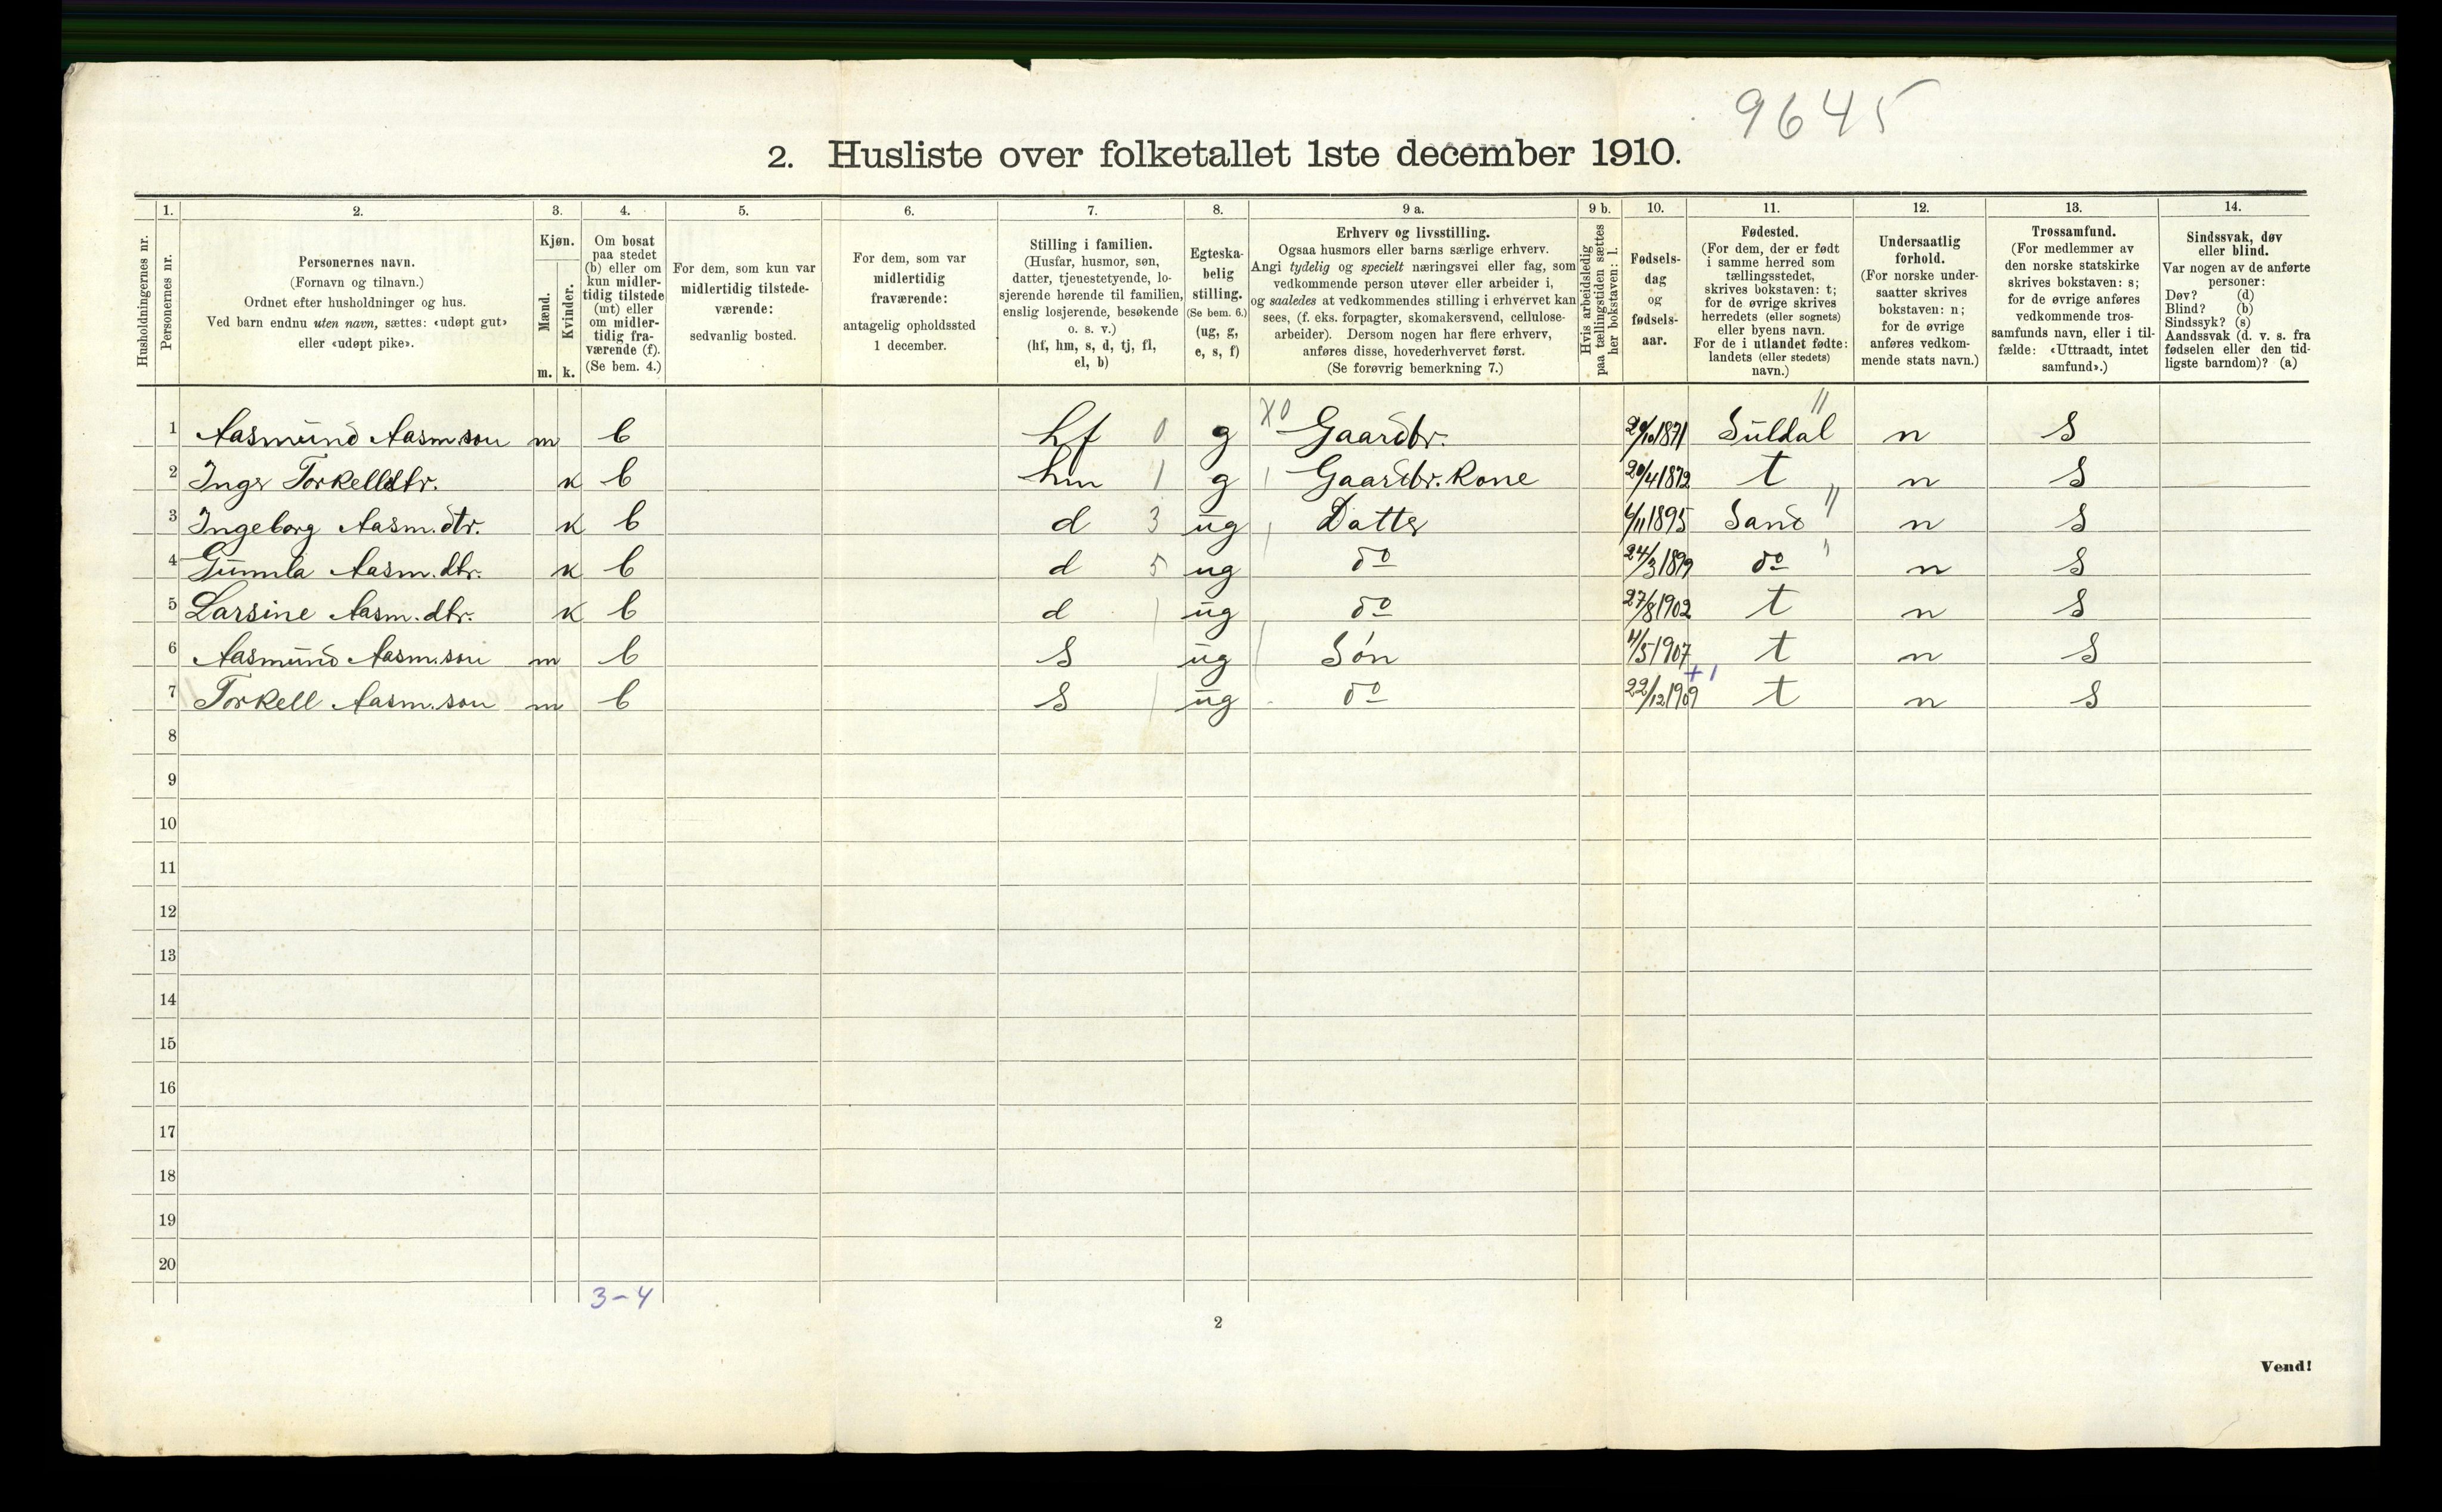 9645
2. Husliste over folketallet 1ste december 1910.
Husholdningernes nr.
1.
Personernes nr.
2.
Personernes navn.
(Fornavn og tilnavn.)
Ordnet efter husholdninger og hus.
Ved barn endnu uten navn, sættes: «udøpt gut»
eller «udøpt pike».
3.
Kjøn.
Mænd.
Kvinder.
m. k.
4.
Om bosat
paa stedet
(b) eller om
kun midler-
tidig tilstede
(mt) eller
om midler-
tidig fra-
værende (f).
(Se bem. 4.)
5.
For dem, som kun var
midlertidig tilstede-
værende:
sedvanlig bosted.
6.
For dem, som var
midlertidig
fraværende:
antagelig opholdssted
1 december.
7.
Stilling i familien.
(Husfar, husmor, søn,
datter, tjenestetyende, lo-
sjerende hørende til familien,
enslig losjerende, besøkende
o. s. v.)
(hf, hm, s, d, tj, fl,
el, b)
8.
Egteska-
belig
stilling.
(Se bem. 6.)
(ug, g,
e, s, f)
9 a.
Erhverv og livsstilling.
Ogsaa husmors eller barns særlige erhverv.
Angi tydelig og specielt næringsvei eller fag, som
vedkommende person utøver eller arbeider i,
og saaledes at vedkommendes stilling i erhvervet kan
sees, (f. eks. forpagter, skomakersvend, cellulose-
arbeider). Dersom nogen har flere erhverv,
anføres disse, hovederhvervet først.
(Se forøvrig bemerkning 7.)
9 b.
Hvis arbeidsledig
paa tællingstiden sættes
her bokstaven: l.
10.
Fødsels-
dag
og
fødsels-
aar.
11.
Fødested.
(For dem, der er født
i samme herred som
tællingsstedet,
skrives bokstaven: t;
for de øvrige skrives
herredets (eller sognets)
eller byens navn.
For de i utlandet fødte:
landets (eller stedets)
navn.)
12.
Undersaatlig
forhold.
(For norske under-
saatter skrives
bokstaven: n;
for de øvrige
anføres vedkom-
mende stats navn.)
13.
Trossamfund.
(For medlemmer av
den norske statskirke
skrives bokstaven: s;
for de øvrige anføres
vedkommende tros-
samfunds navn, eller i til-
fælde: «Uttraadt, intet
samfund».)
14.
Sindssvak, døv
eller blind.
Var nogen av de anførte
personer:
Døv? (d)
Blind? (b)
Sindssyk? (s)
Aandssvak (d. v. s. fra
fødselen eller den tid-
ligste barndom)? (a)
1 Aasmund Aasm.son m b hf 0 g X0 Gaardbr. 1871 Suldal " n s
2 Inger Torkelldtr. k b hm 1 g Gaardbr. Kone 20/4 1872 t n s
3 Ingeborg Aasm.dtr. k b d 3 ug Datter 1895 Sand " n s
4 Gunnla Aasm.dtr. k b d 5 ug do 24/3 1899 do n s
5 Larsine Aasm.dtr. k b d ug do 27/8 1902 t n s
6 Aasmund Aasm.son m b s ug Søn 4/5 1907 t n s
+1
7 Torkell Aasm.son m b s ug do 22/12 1909 t n s
8
9
10
11
12
13
14
15
16
17
18
19
20
3-4
2
Vend!